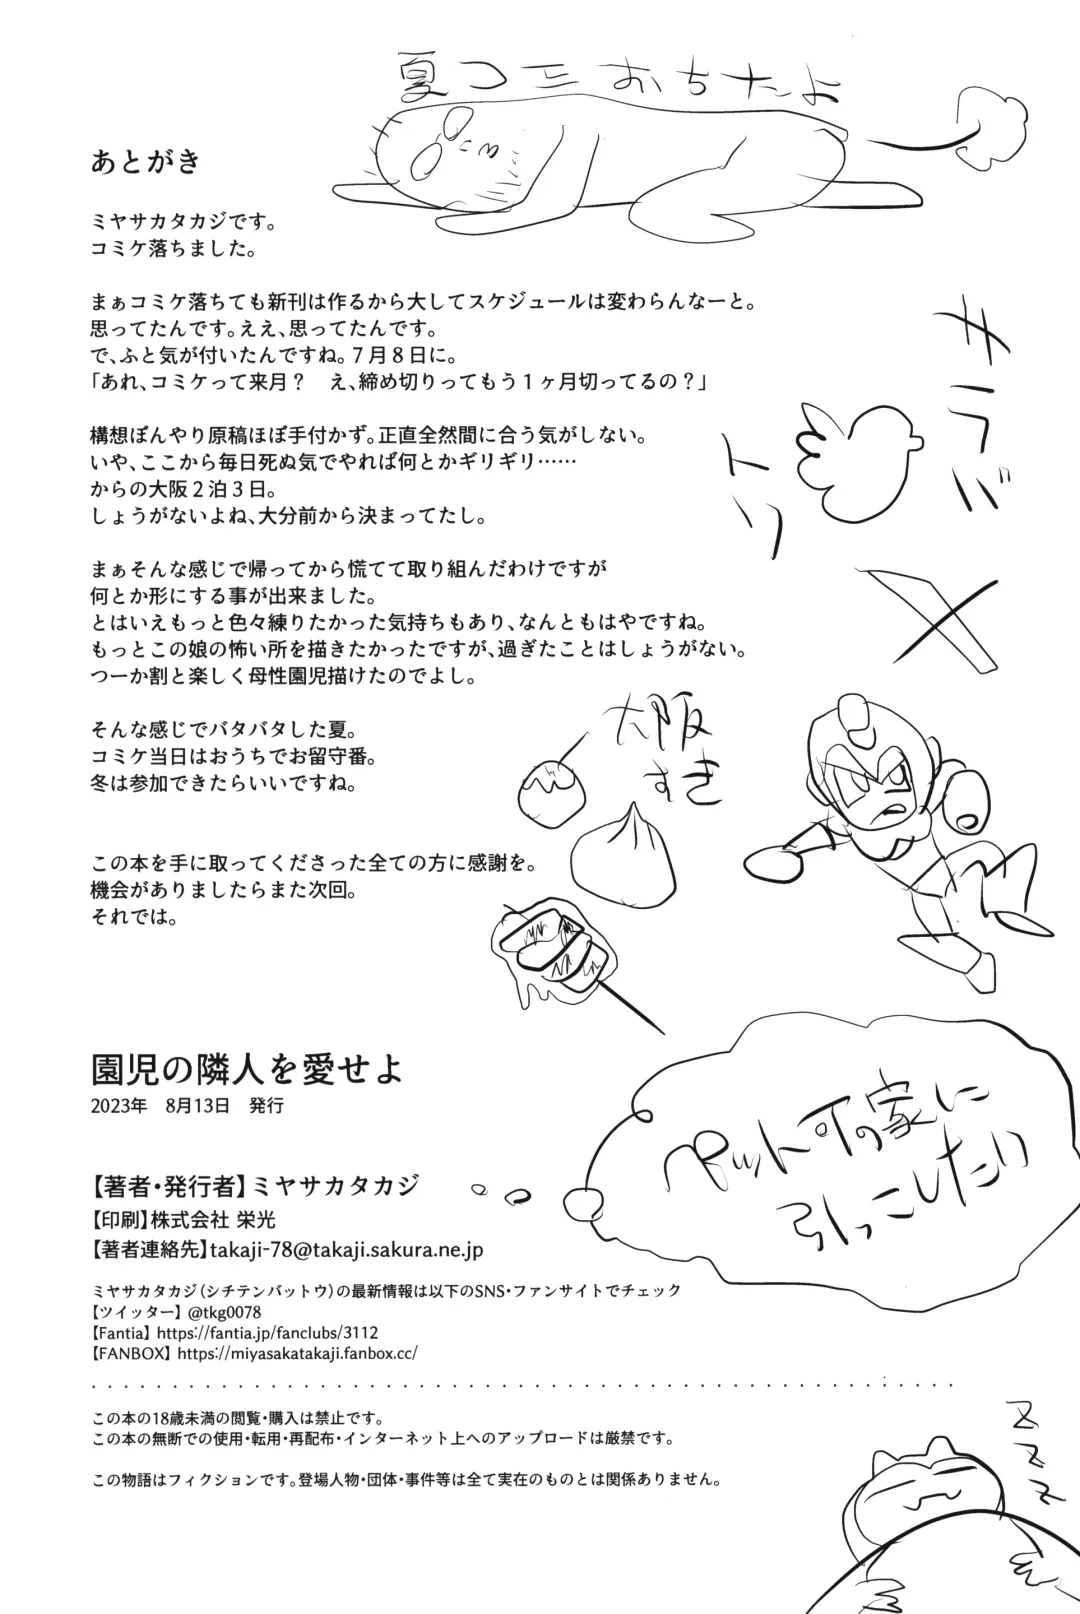 夏コミおちたよ
あとがき
ミヤサカタカジです。
コミケ落ちました。
まぁコミケ落ちても新刊は作るから大してスケジュールは変わらんなーと。
思ってたんです。ええ、思ってたんです。
で、ふと気が付いたんですね。７月８日に。
「あれ、コミケって来月？　え、締め切りってもう１ヶ月切ってるの？」
構想ぼんやり原稿ほぼ手付かず。正直全然間に合う気がしない。
いや、ここから毎日死ぬ気でやれば何とかギリギリ……
からの大阪２泊３日。
しょうがないよね、大分前から決まってたし。
まぁそんな感じで帰ってから慌てて取り組んだわけですが
何とか形にする事が出来ました。
とはいえもっと色々練りたかった気持ちもあり、なんともはやですね。
もっとこの娘の怖い所を描きたかったですが、過ぎたことはしょうがない。
つーか割と楽しく母性園児描けたのでよし。
そんな感じでバタバタした夏。
コミケ当日はおうちでお留守番。
冬は参加できたらいいですね。
この本を手に取ってくださった全ての方に感謝を。
機会がありましたらまた次回。
それでは。
サラバ
トリ
大阪
すき
ペット可の家に
引っこしたい
園児の隣人を愛せよ
2023年　8月13日　発行
【著者・発行者】ミヤサカタカジ
【印刷】株式会社 栄光
【著者連絡先】takaji-78@takaji.sakura.ne.jp
ミヤサカタカジ（シチテンバットウ）の最新情報は以下のSNS・ファンサイトでチェック
【ツイッター】 @tkg0078
【Fantia】 https://fantia.jp/fanclubs/3112
【FANBOX】 https://miyasakatakaji.fanbox.cc/
この本の18歳未満の閲覧・購入は禁止です。
この本の無断での使用・転用・再配布・インターネット上へのアップロードは厳禁です。
この物語はフィクションです。登場人物・団体・事件等は全て実在のものとは関係ありません。
ZZZZ